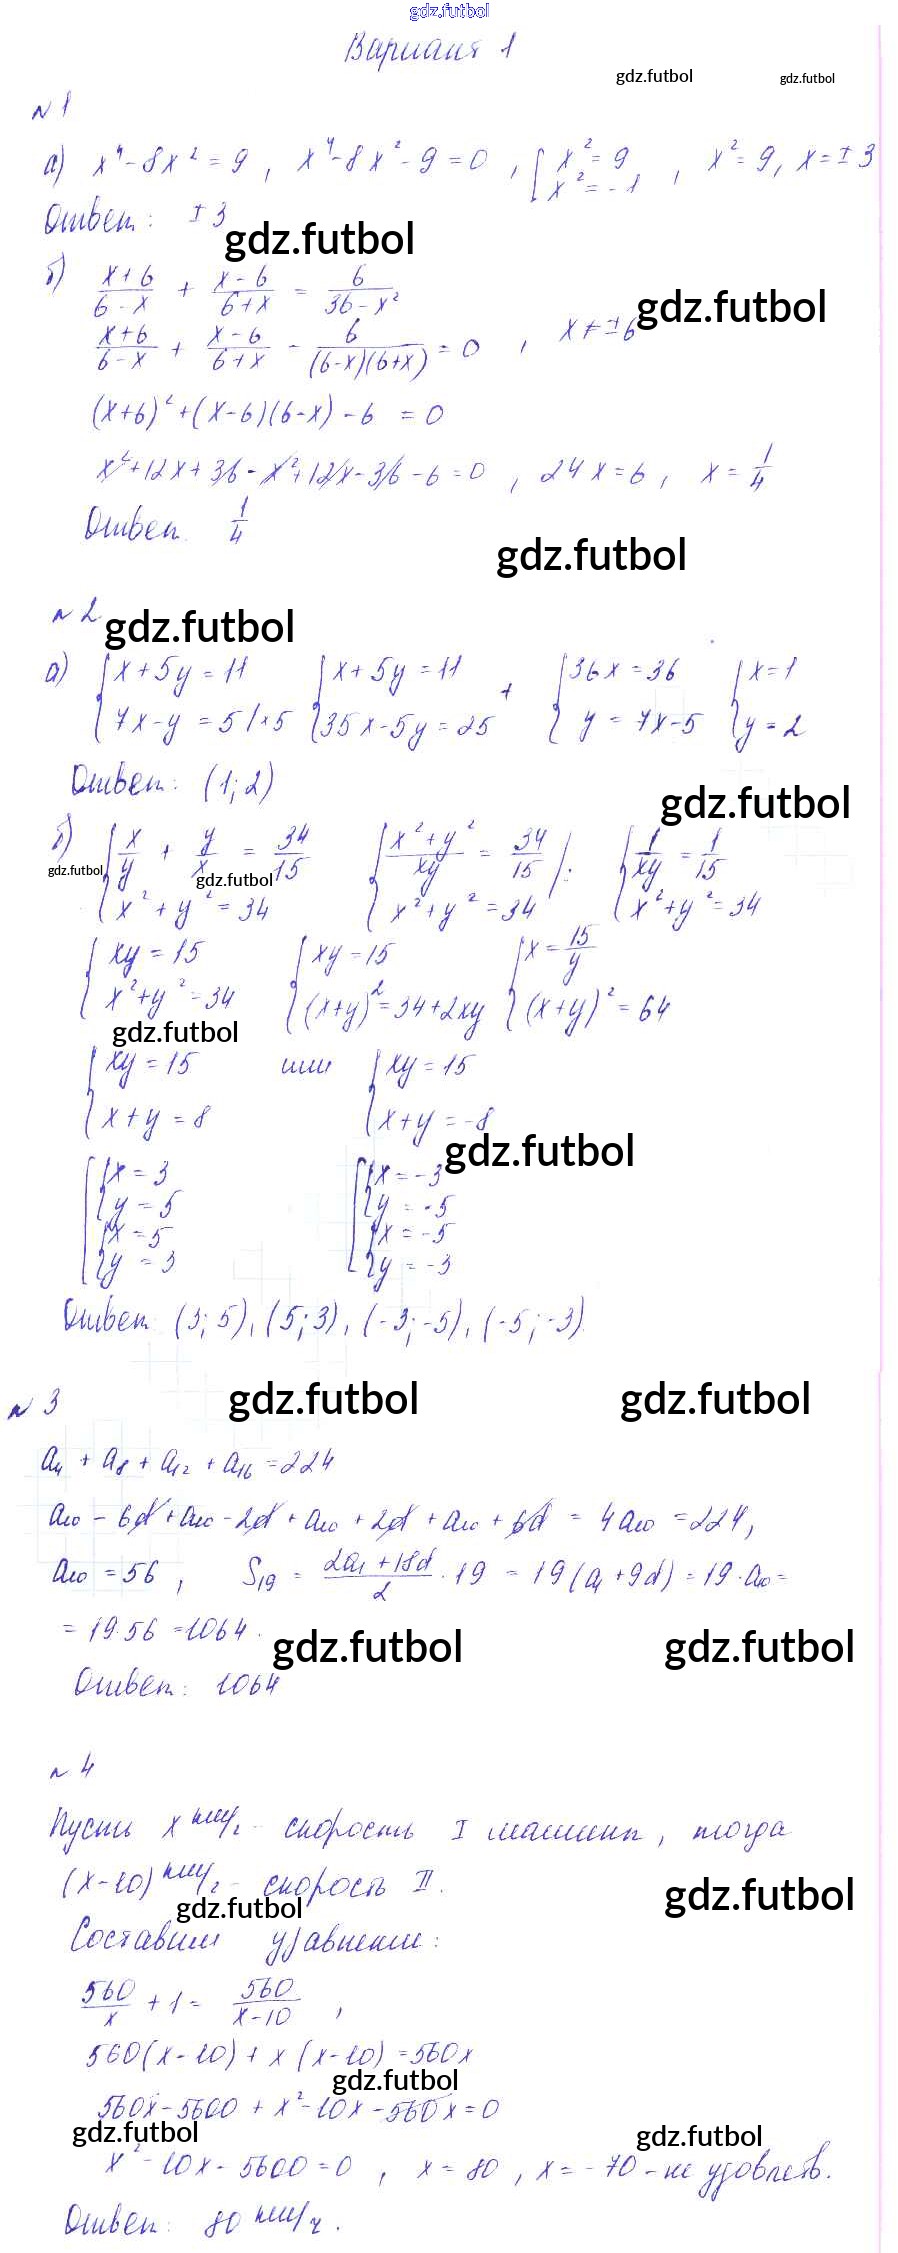 gdz.futbol
Вариант 1
gdz.futbol gdz.futbol
№ 1
а) x⁴ - 8x² = 9, x⁴ - 8x² - 9 = 0, [ x² = 9 x² = -1, x² = 9, x = ± 3
Ответ: ± 3
gdz.futbol
б) (x+6)/(6-x) + (x-6)/(6+x) = 6/(36-x²)
gdz.futbol
(x+6)/(6-x) + (x-6)/(6+x) - 6/((6-x)(6+x)) = 0, x ≠ ±6
(x+6)² + (x-6)(6-x) - 6 = 0
x² + 12x + 36 - x² + 12x - 36 - 6 = 0, 24x = 6, x = 1/4
Ответ. 1/4
gdz.futbol
№ 2
gdz.futbol
а) { x + 5y = 11 { x + 5y = 11 + { 36x = 36 { x = 1
7x - y = 5 | × 5 35x - 5y = 25 y = 7x - 5 y = 2
Ответ: (1; 2)
gdz.futbol
б) { x/y + y/x = 34/15 { (x² + y²)/xy = 34/15 ) : { 1/xy = 1/15
gdz.futbol gdz.futbol
x² + y² = 34 x² + y² = 34 x² + y² = 34
{ xy = 15 { xy = 15 { x = 15/y
x² + y² = 34 (x+y)² = 34 + 2xy (x+y)² = 64
gdz.futbol
{ xy = 15 или { xy = 15
x + y = 8 x + y = -8
gdz.futbol
[ { x = 3 [ { x = -3
y = 5 y = -5
{ x = 5 { x = -5
y = 3 y = -3
Ответ: (3; 5), (5; 3), (-3; -5), (-5; -3)
gdz.futbol gdz.futbol
№ 3
a₄ + a₈ + a₁₂ + a₁₆ = 224
a₁₀ - 6d + a₁₀ - 2d + a₁₀ + 2d + a₁₀ + 6d = 4a₁₀ = 224,
a₁₀ = 56, S₁₉ = (2a₁ + 18d)/2 · 19 = 19(a₁ + 9d) = 19 · a₁₀ =
= 19·56 = 1064.
gdz.futbol gdz.futbol
Ответ: 1064
№ 4
Пусть x км/ч - скорость I машины, тогда
(x-10) км/ч - скорость II.
gdz.futbol gdz.futbol
Составим уравнение:
560/x + 1 = 560/(x-10),
560(x-10) + x(x-10) = 560x
gdz.futbol
560x - 5600 + x² - 10x - 560x = 0
gdz.futbol gdz.futbol
x² - 10x - 5600 = 0, x = 80, x = -70 - не удовлетв.
Ответ: 80 км/ч.